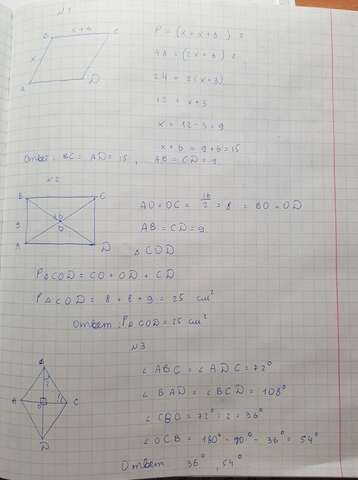 №1
B
x+6
C
x
A
D
P = (x + x + 6) · 2
48 = (2x + 6) · 2
24 = 2(x+3)
12 = x + 3
x = 12 - 3 = 9
x + 6 = 9 + 6 = 15
Ответ: BC = AD = 15, AB = CD = 9
№2
B
C
16
9
O
A
D
AO = OC = 16/2 = 8 = BO = OD
AB = CD = 9
Δ COD
PΔCOD = CO + OD + CD
PΔCOD = 8 + 8 + 9 = 25 см²
Ответ: PΔCOD = 25 см²
№3
B
A
O
C
D
∠ABC = ∠ADC = 72°
∠BAD = ∠BCD = 108°
∠CBO = 72° : 2 = 36°
∠OCB = 180° - 90° - 36° = 54°
Ответ 36°, 54°